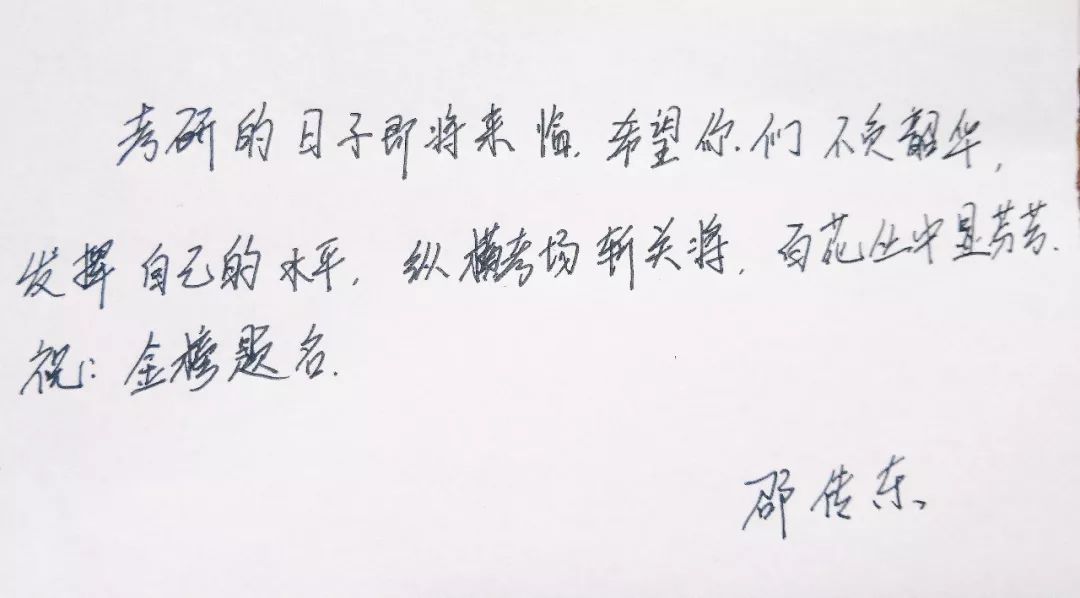 考研的日子即将来临.希望你们不负韶华,
发挥自己的水平,纵横考场斩关将,百花丛中显芬芳.
祝:金榜题名.
邵传东